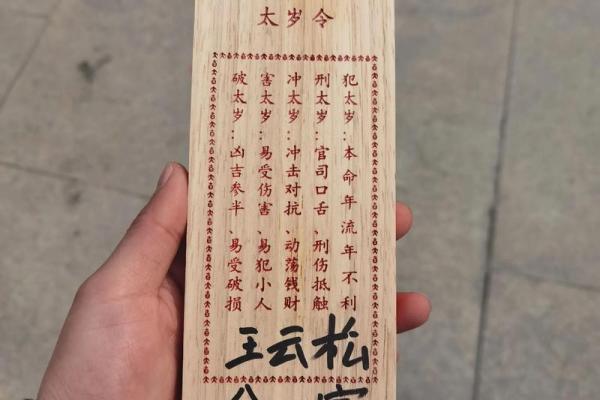 太岁令
犯太岁：本命年流年不利
刑太岁：官司口舌、刑伤抵触
冲太岁：冲击对抗、动荡钱财
害太岁：易受伤害、易犯小人
破太岁：凶吉参半、易受破损
王云松